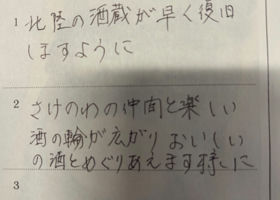 1 北陸の酒蔵が早く復旧
しますように
2 さけのわの仲間と楽しい
酒の輪が広がり おいしい
の酒とめぐりあえます様に
3